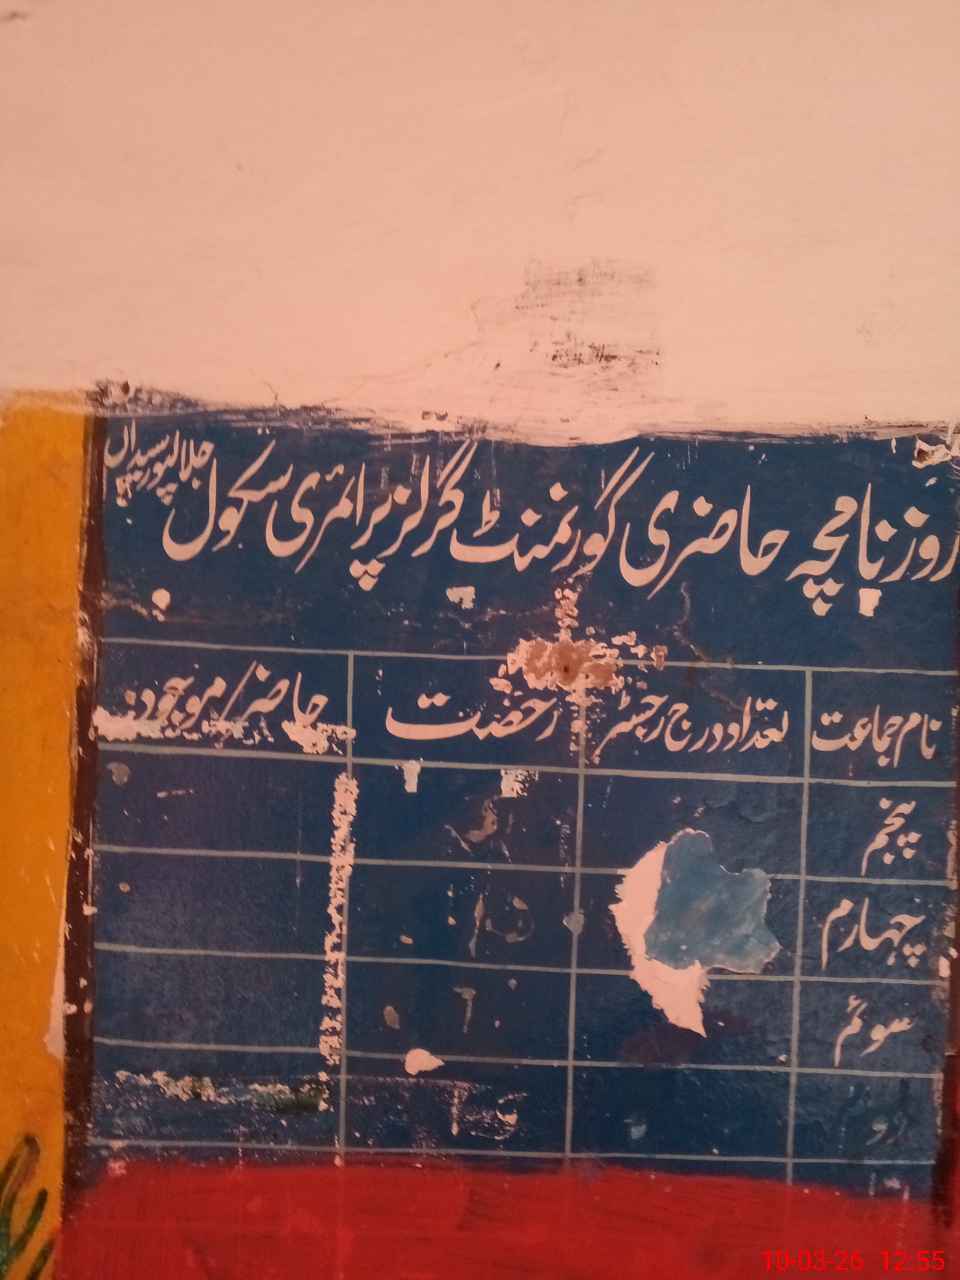 روزنامچہ حاضری گورنمنٹ گرلز پرائمری سکول جلالپور سیداں
نام جماعت تعداد درج رجسٹر رخصت حاضر/موجود
پنجم
چہارم
سوئم
10-03-26 12:55